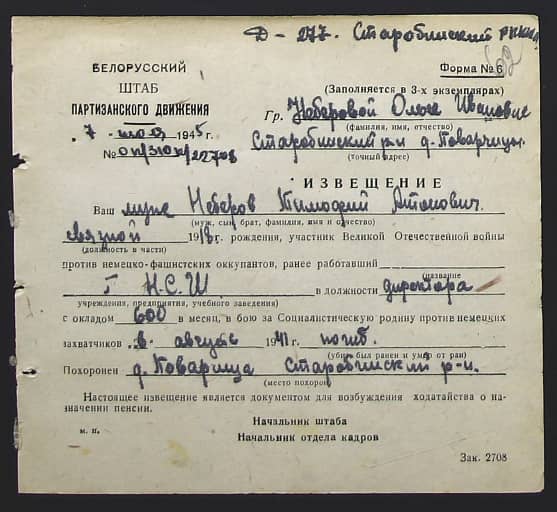 Д - 277. Старобинский РККА
62
БЕЛОРУССКИЙ
ШТАБ
ПАРТИЗАНСКОГО ДВИЖЕНИЯ
7 мая 1945 г.
№ 0кр/310кр/22708
Форма № 6
(Заполняется в 3-х экземплярах)
Гр. Неверовой Ольге Ивановне
(фамилия, имя, отчество)
Старобинский р-н д. Поварчицы.
(точный адрес)
ИЗВЕЩЕНИЕ
Ваш муж Неверов Тимофей Антонович.
(муж, сын, брат, фамилия, имя и отчество)
связной 1918 г. рождения, участник Великой Отечественной войны
(должность в части)
против немецко-фашистских оккупантов, ранее работавший
(название
Н.С.Ш в должности директора
учреждения, предприятия, учебного заведения)
с окладом 600 в месяц, в бою за Социалистическую родину против немецких
захватчиков в август 1941 г. погиб.
(убит, был ранен и умер от ран)
Похоронен д. Поварчица Старобинский р-н.
(место похорон)
Настоящее извещение является документом для возбуждения ходатайства о на-
значении пенсии.
Начальник штаба
м. п.
Начальник отдела кадров
Зак. 2708